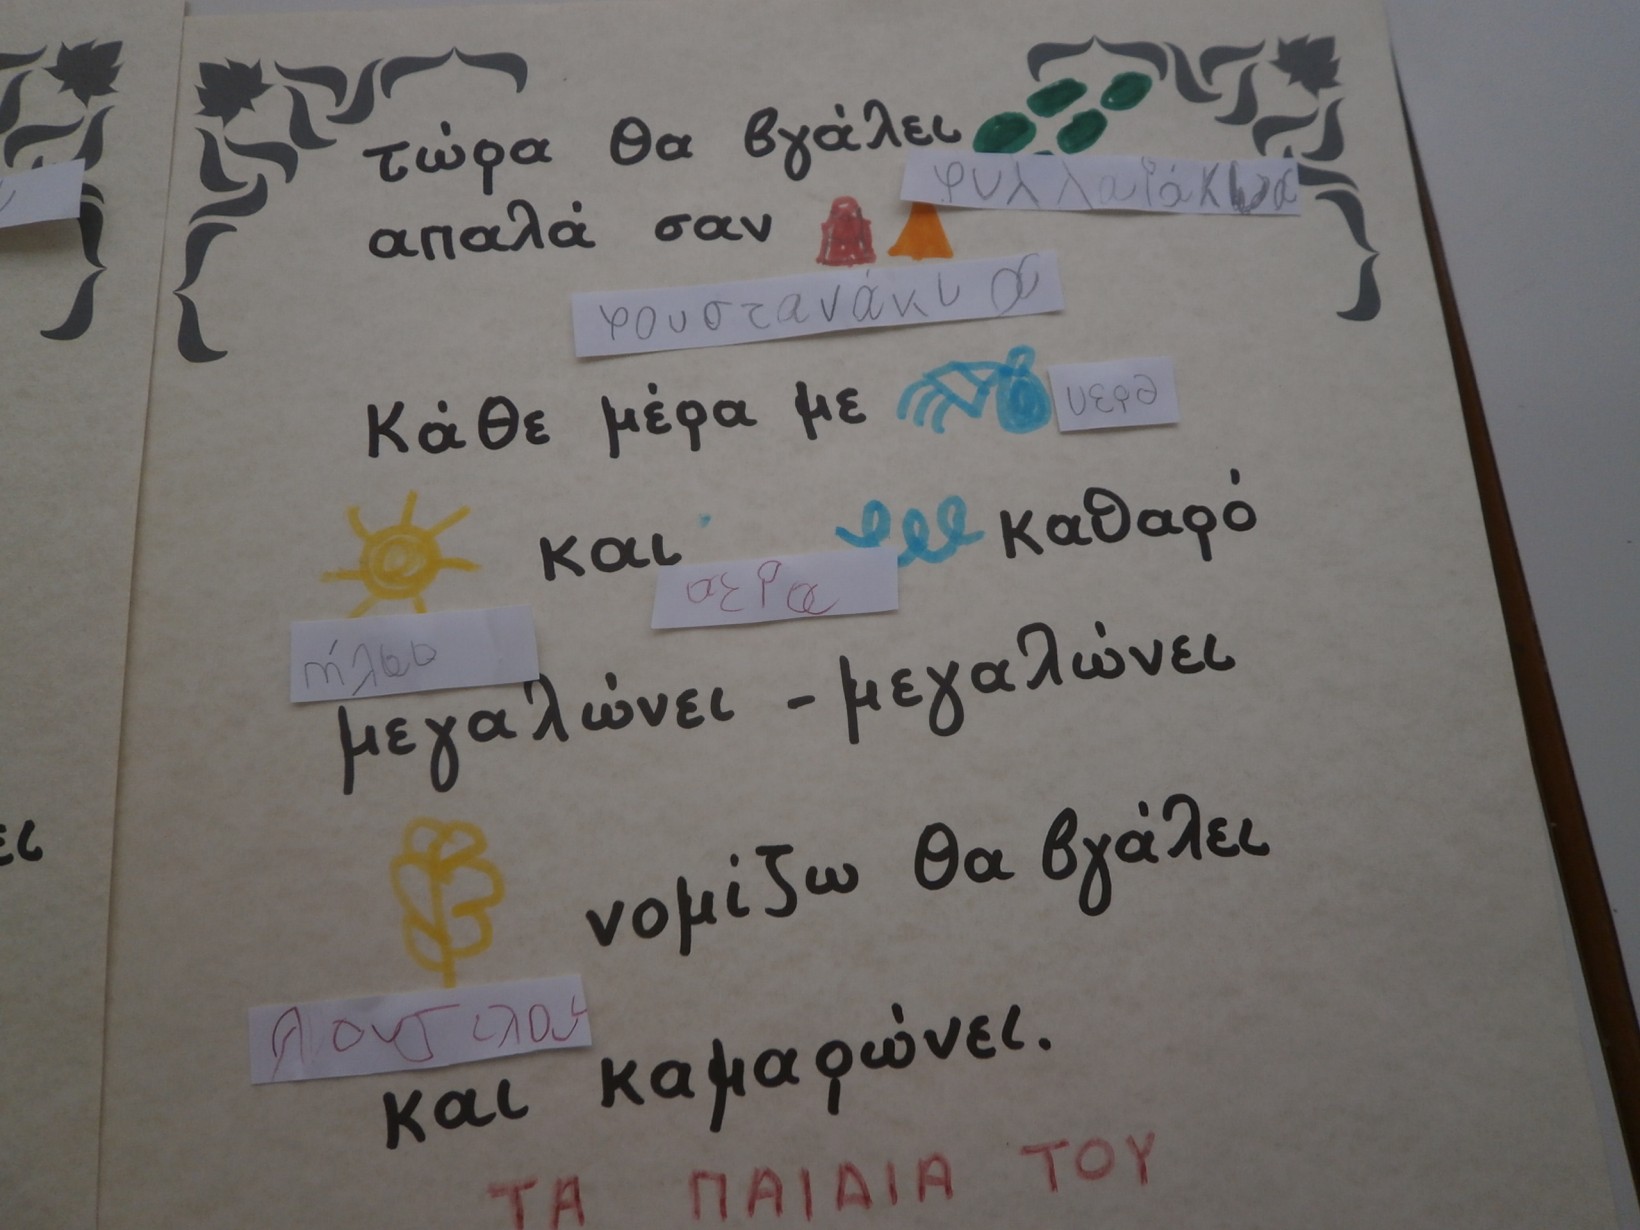 τώρα θα βγάλει
φυλλαράκια
απαλά σαν
φουστανάκια
Κάθε μέρα με
νερο
και
καθαρό
αερα
ήλιο
μεγαλώνει - μεγαλώνει
νομίζω θα βγάλει
λουλουδ
και καμαρώνει.
ΤΑ ΠΑΙΔΙΑ ΤΟΥ
ει